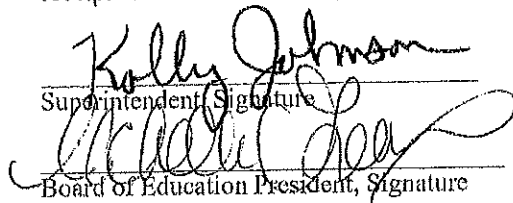 Kolly Johnson
Superintendent, Signature
Board of Education President, Signature